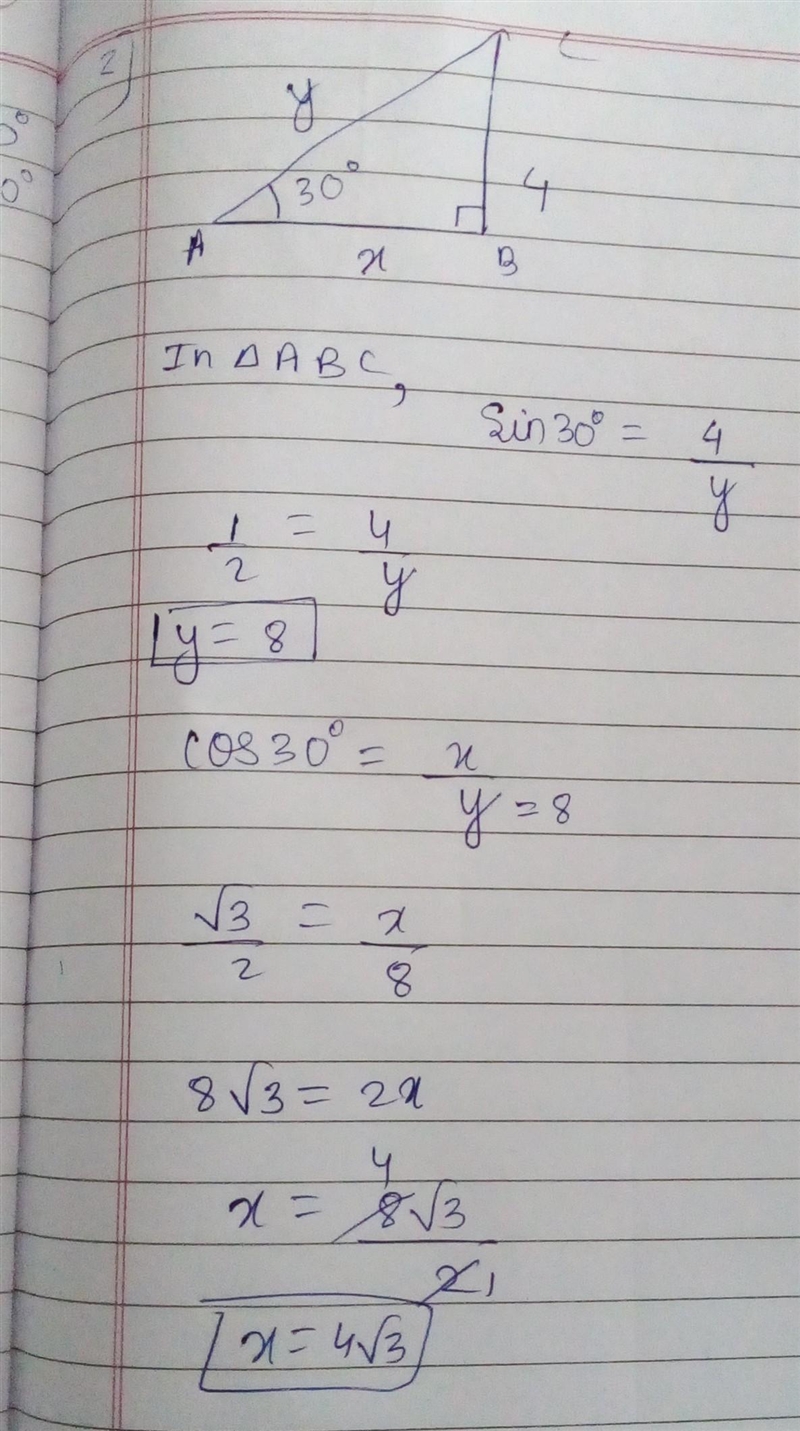 2)
C
y
30°
4
A
x
B
In △ABC,
Sin30° = 4/y
1/2 = 4/y
y = 8
cos30° = x/y = 8
√3/2 = x/8
8√3 = 2x
4
x = 8√3/2 1
x = 4√3